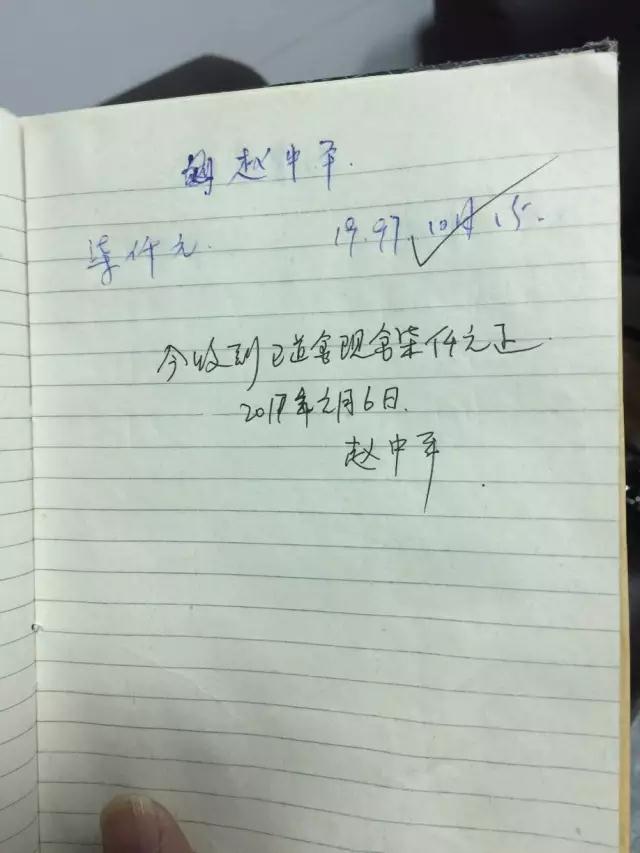 赵中平.
柒仟元. 19.97.10月15.
今收到 现金柒仟元正.
2017年元月6日.
赵中平